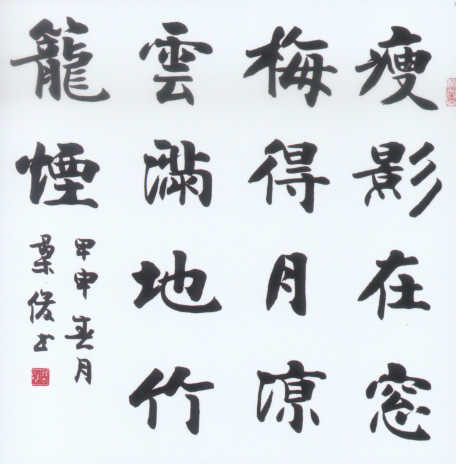 瘦影在窓
梅得月凉
雲滿地竹
籠煙
甲申春月
俊书